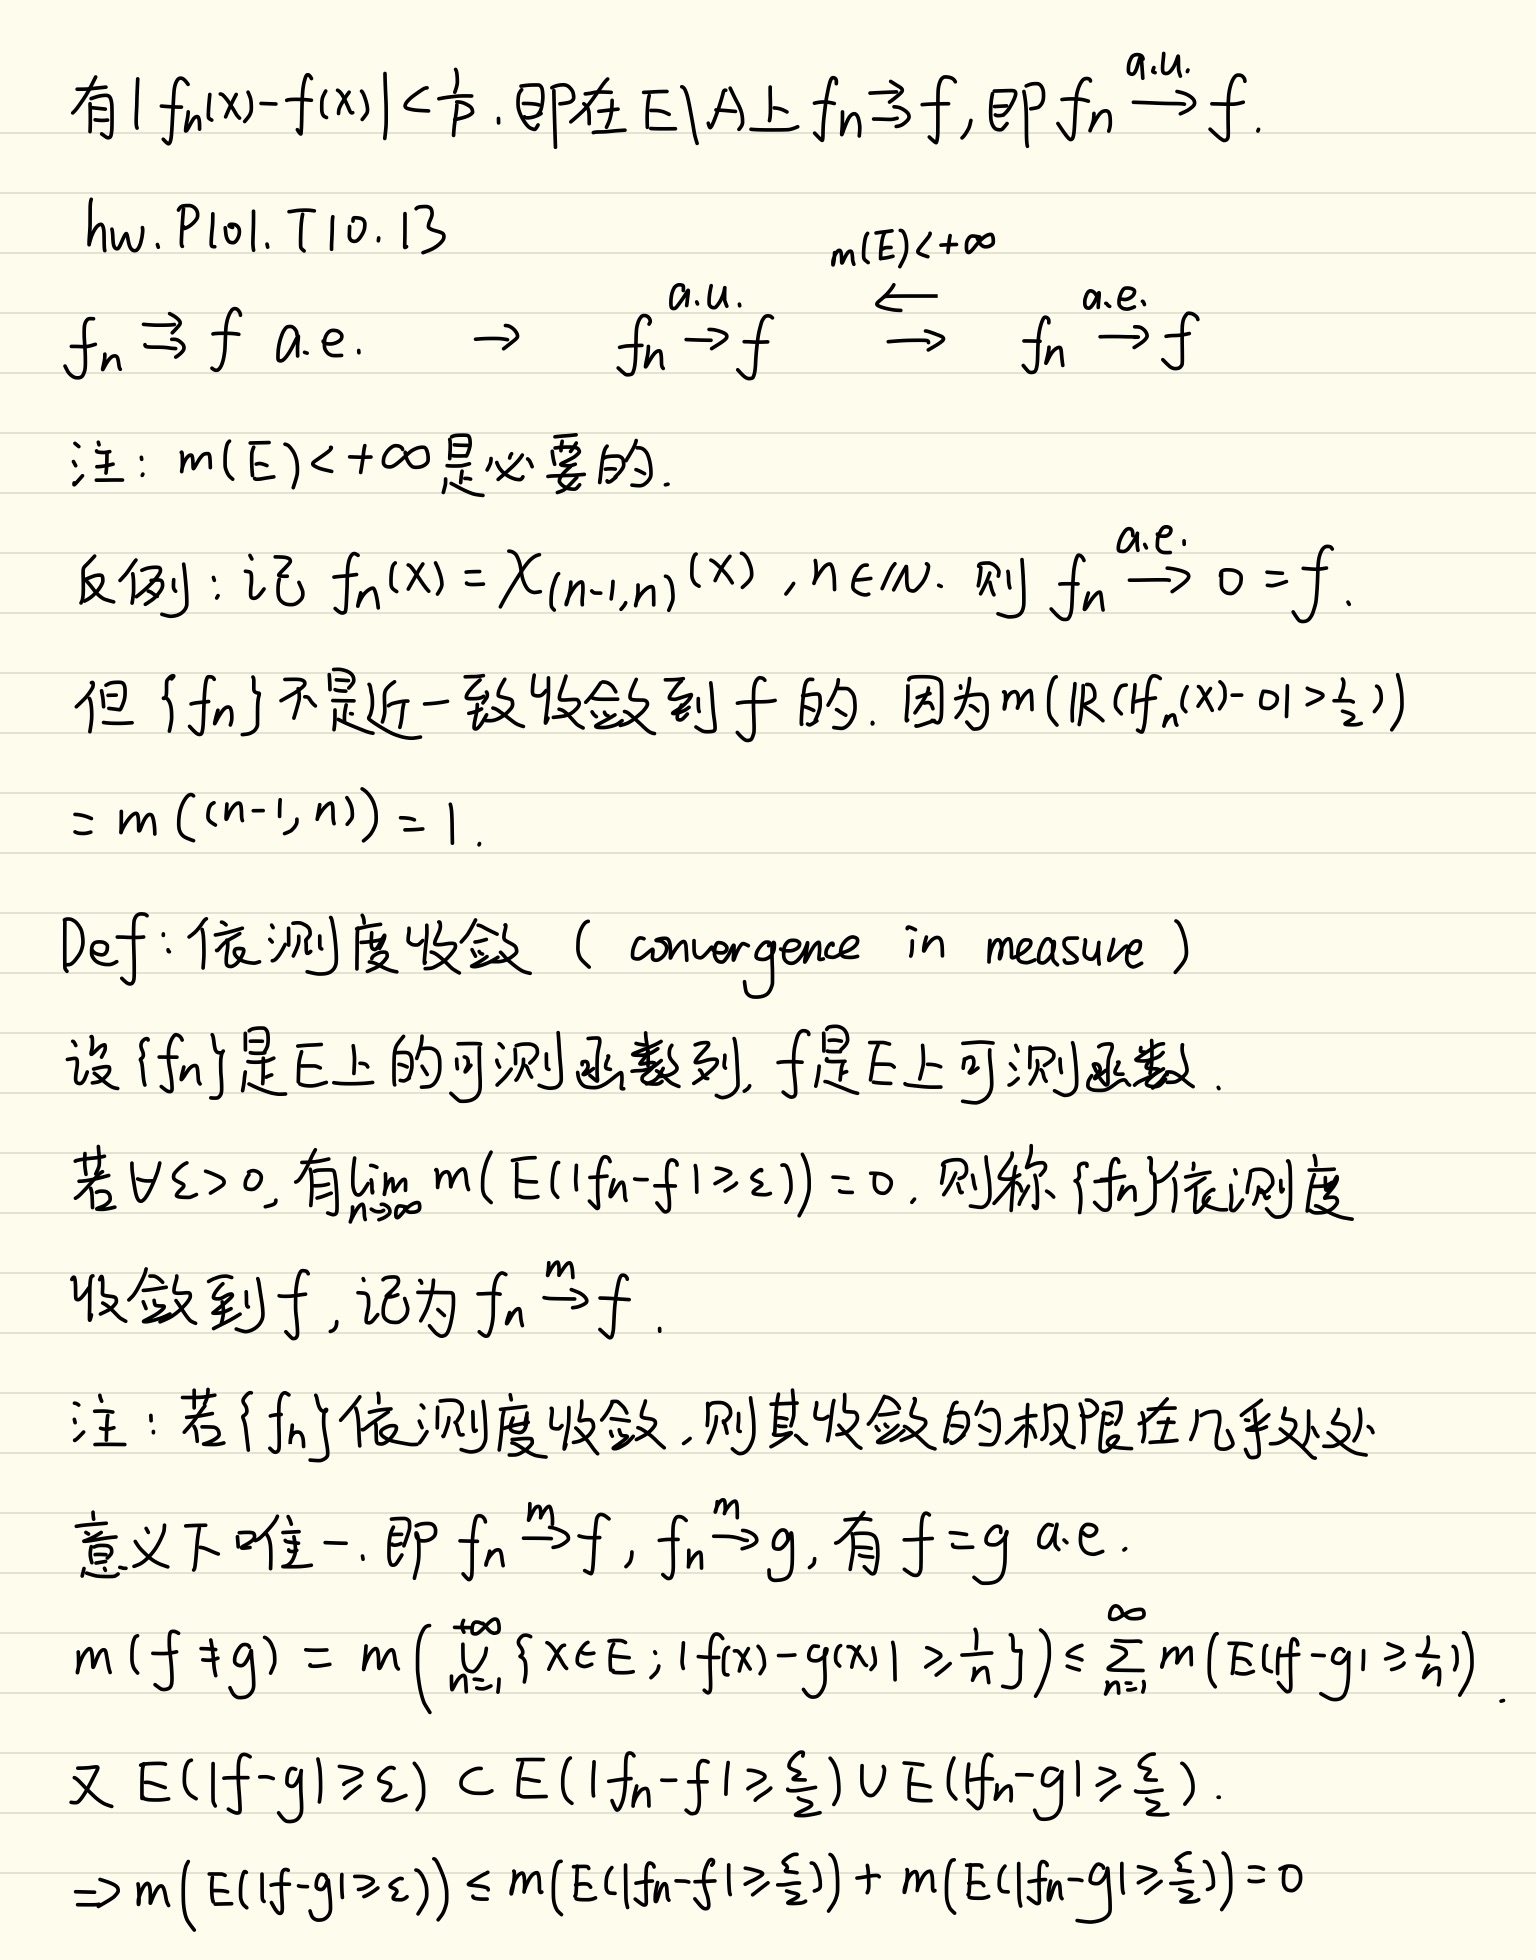 有|fₙ(x)-f(x)|<1/p. 即在E\A上fₙ⇉f,即fₙ →(a.u.) f.
hw. P101. T10. 13
fₙ ⇉ f a.e. → fₙ →(a.u.) f ←(m(E)<+∞) → fₙ →(a.e.) f
注: m(E)<+∞是必要的.
反例: 记 fₙ(x) = χ_(n-1,n)(x), n∈ℕ. 则 fₙ →(a.e.) 0 = f.
但{fₙ}不是近一致收敛到f的. 因为m(ℝ(|fₙ(x)-0|>1/2))
= m((n-1,n)) = 1.
Def: 依测度收敛 ( convergence in measure )
设{fₙ}是E上的可测函数列, f是E上可测函数.
若∀ε>0, 有lim_{n→∞} m(E(|fₙ-f|≥ε))=0. 则称{fₙ}依测度
收敛到f, 记为fₙ →(m) f.
注: 若{fₙ}依测度收敛, 则其收敛的极限在几乎处处
意义下唯一. 即 fₙ →(m) f, fₙ →(m) g, 有 f=g a.e.
m(f≠g) = m(⋃_{n=1}^{+∞} {x∈E; |f(x)-g(x)|≥1/n}) ≤ ∑_{n=1}^{∞} m(E(|f-g|≥1/n)).
又 E(|f-g|≥ε) ⊂ E(|fₙ-f|≥ε/2) ∪ E(|fₙ-g|≥ε/2).
⇒ m(E(|f-g|≥ε)) ≤ m(E(|fₙ-f|≥ε/2)) + m(E(|fₙ-g|≥ε/2)) = 0